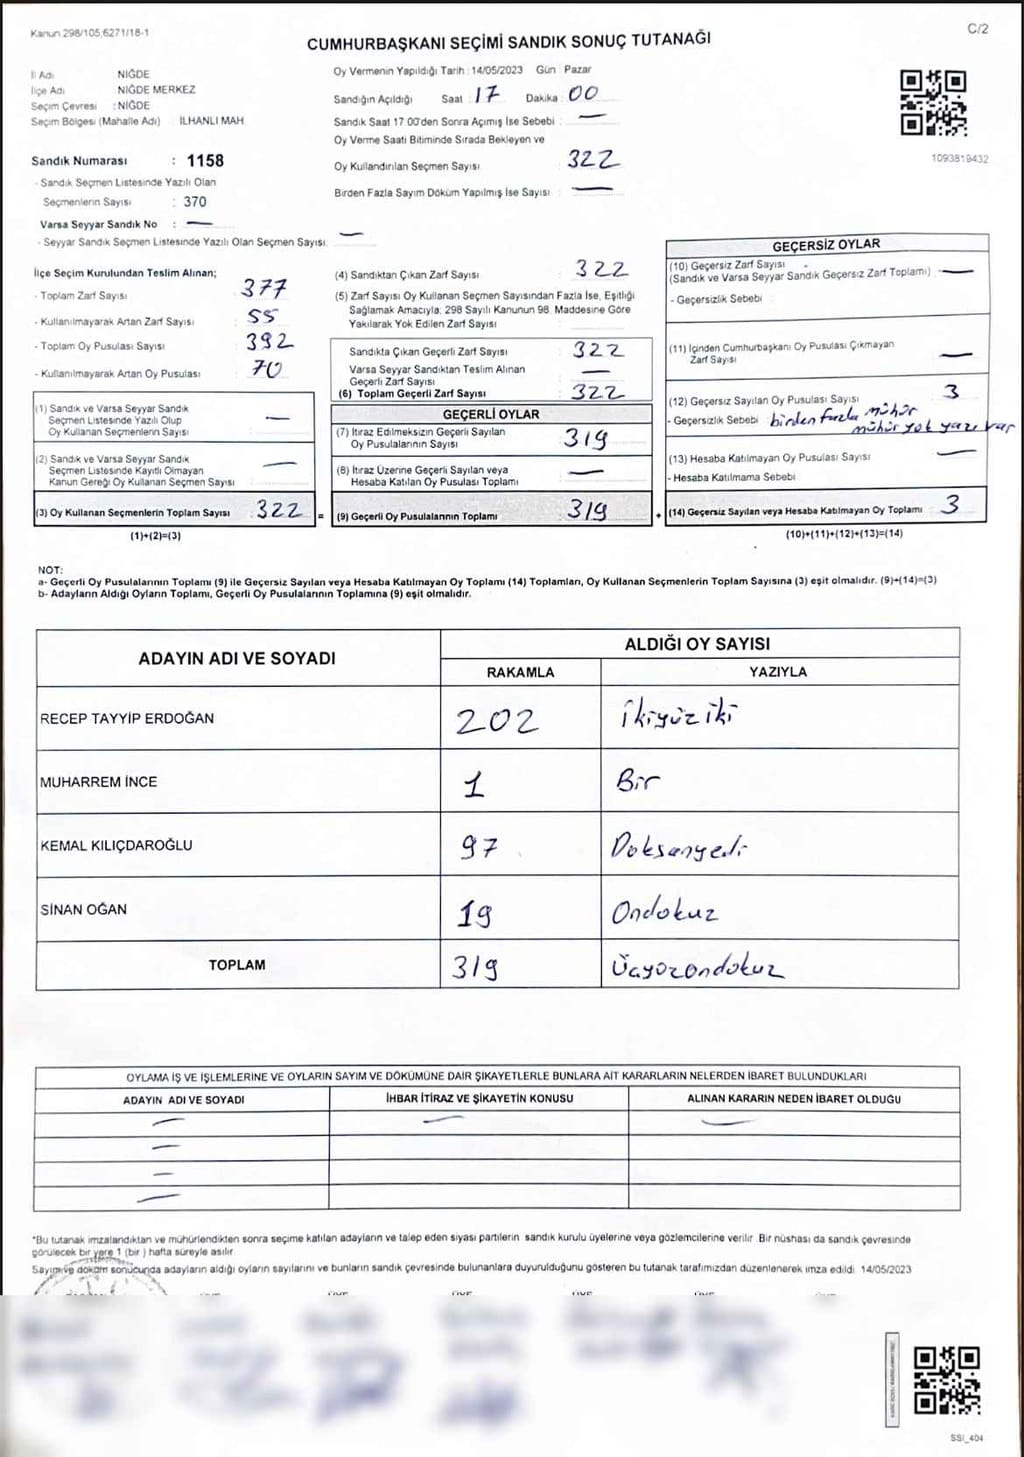 Kanun 298/105,6271/18-1
C/2
CUMHURBAŞKANI SEÇİMİ SANDIK SONUÇ TUTANAĞI
İl Adı NİĞDE
İlçe Adı NİĞDE MERKEZ
Seçim Çevresi : NİĞDE
Seçim Bölgesi (Mahalle Adı) İLHANLI MAH.
Sandık Numarası : 1158
- Sandık Seçmen Listesinde Yazılı Olan
Seçmenlerin Sayısı : 370
Varsa Seyyar Sandık No : —
- Seyyar Sandık Seçmen Listesinde Yazılı Olan Seçmen Sayısı: —
Oy Vermenin Yapıldığı Tarih : 14/05/2023 Gün : Pazar
Sandığın Açıldığı Saat : 17 Dakika : 00
Sandık Saat 17 00'den Sonra Açılmış İse Sebebi : —
Oy Verme Saati Bitiminde Sırada Bekleyen ve
Oy Kullandırılan Seçmen Sayısı : 322
Birden Fazla Sayım Döküm Yapılmış İse Sayısı : —
1093819432
İlçe Seçim Kurulundan Teslim Alınan;
- Toplam Zarf Sayısı : 377
- Kullanılmayarak Artan Zarf Sayısı : 55
- Toplam Oy Pusulası Sayısı : 392
- Kullanılmayarak Artan Oy Pusulası : 70
(1) Sandık ve Varsa Seyyar Sandık
Seçmen Listesinde Yazılı Olup
Oy Kullanan Seçmenlerin Sayısı : —
(2) Sandık ve Varsa Seyyar Sandık
Seçmen Listesinde Kayıtlı Olmayan
Kanun Gereği Oy Kullanan Seçmen Sayısı : —
(3) Oy Kullanan Seçmenlerin Toplam Sayısı : 322 =
(1)+(2)=(3)
(4) Sandıktan Çıkan Zarf Sayısı : 322
(5) Zarf Sayısı Oy Kullanan Seçmen Sayısından Fazla İse, Eşitliği
Sağlamak Amacıyla, 298 Sayılı Kanunun 98. Maddesine Göre
Yakılarak Yok Edilen Zarf Sayısı :
Sandıkta Çıkan Geçerli Zarf Sayısı : 322
Varsa Seyyar Sandıktan Teslim Alınan
Geçerli Zarf Sayısı : —
(6) Toplam Geçerli Zarf Sayısı : 322
GEÇERLİ OYLAR
(7) İtiraz Edilmeksizin Geçerli Sayılan
Oy Pusulalarının Sayısı : 319
(8) İtiraz Üzerine Geçerli Sayılan veya
Hesaba Katılan Oy Pusulası Toplamı : —
(9) Geçerli Oy Pusulalarının Toplamı : 319 +
GEÇERSİZ OYLAR
(10) Geçersiz Zarf Sayısı
(Sandık ve Varsa Seyyar Sandık Geçersiz Zarf Toplamı) : —
- Geçersizlik Sebebi :
(11) İçinden Cumhurbaşkanı Oy Pusulası Çıkmayan
Zarf Sayısı : —
(12) Geçersiz Sayılan Oy Pusulası Sayısı : 3
- Geçersizlik Sebebi : birden fazla mühür
mühür yok yazı var
(13) Hesaba Katılmayan Oy Pusulası Sayısı : —
- Hesaba Katılmama Sebebi
(14) Geçersiz Sayılan veya Hesaba Katılmayan Oy Toplamı : 3
(10)+(11)+(12)+(13)=(14)
NOT:
a- Geçerli Oy Pusulalarının Toplamı (9) ile Geçersiz Sayılan veya Hesaba Katılmayan Oy Toplamı (14) Toplamları, Oy Kullanan Seçmenlerin Toplam Sayısına (3) eşit olmalıdır. (9)+(14)=(3)
b- Adayların Aldığı Oyların Toplamı, Geçerli Oy Pusulalarının Toplamına (9) eşit olmalıdır.
ADAYIN ADI VE SOYADI
ALDIĞI OY SAYISI
RAKAMLA YAZIYLA
RECEP TAYYİP ERDOĞAN 202 İkiyüziki
MUHARREM İNCE 1 Bir
KEMAL KILIÇDAROĞLU 97 Doksanyedi
SİNAN OĞAN 19 Ondokuz
TOPLAM 319 Üçyüzondokuz
OYLAMA İŞ VE İŞLEMLERİNE VE OYLARIN SAYIM VE DÖKÜMÜNE DAİR ŞİKAYETLERLE BUNLARA AİT KARARLARIN NELERDEN İBARET BULUNDUKLARI
ADAYIN ADI VE SOYADI İHBAR İTİRAZ VE ŞİKAYETİN KONUSU ALINAN KARARIN NEDEN İBARET OLDUĞU
— — —
—
—
—
*Bu tutanak imzalandıktan ve mühürlendikten sonra seçime katılan adayların ve talep eden siyasi partilerin sandık kurulu üyelerine veya gözlemcilerine verilir. Bir nüshası da sandık çevresinde
görülecek bir yere 1 (bir ) hafta süreyle asılır.
Sayım ve döküm sonucunda adayların aldığı oyların sayılarını ve bunların sandık çevresinde bulunanlara duyurulduğunu gösteren bu tutanak tarafımızdan düzenlenerek imza edildi. 14/05/2023
SSI_404